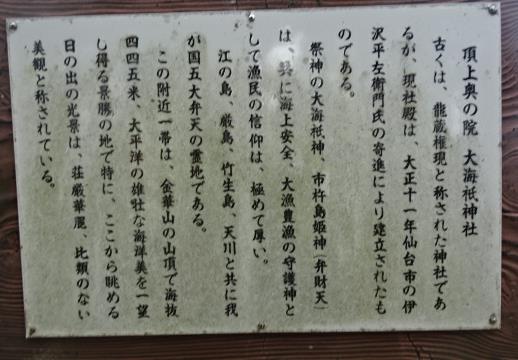 頂上奥の院 大海祇神社
古くは、龍蔵権現と称された神社であ
るが、現社殿は、大正十一年仙台市の伊
沢平左衛門氏の寄進により建立されたも
のである。
祭神の大海祇神、市杵島姫神(弁財天)
は、共に海上安全、大漁豊漁の守護神と
して漁民の信仰は、極めて厚い。
江の島、厳島、竹生島、天川と共に我
が国五大弁天の霊地である。
この附近一帯は、金華山の山頂で海抜
四四五米、大平洋の雄壮な海洋美を一望
し得る景勝の地で特に、ここから眺める
日の出の光景は、荘厳華麗、比類のない
美観と称されている。